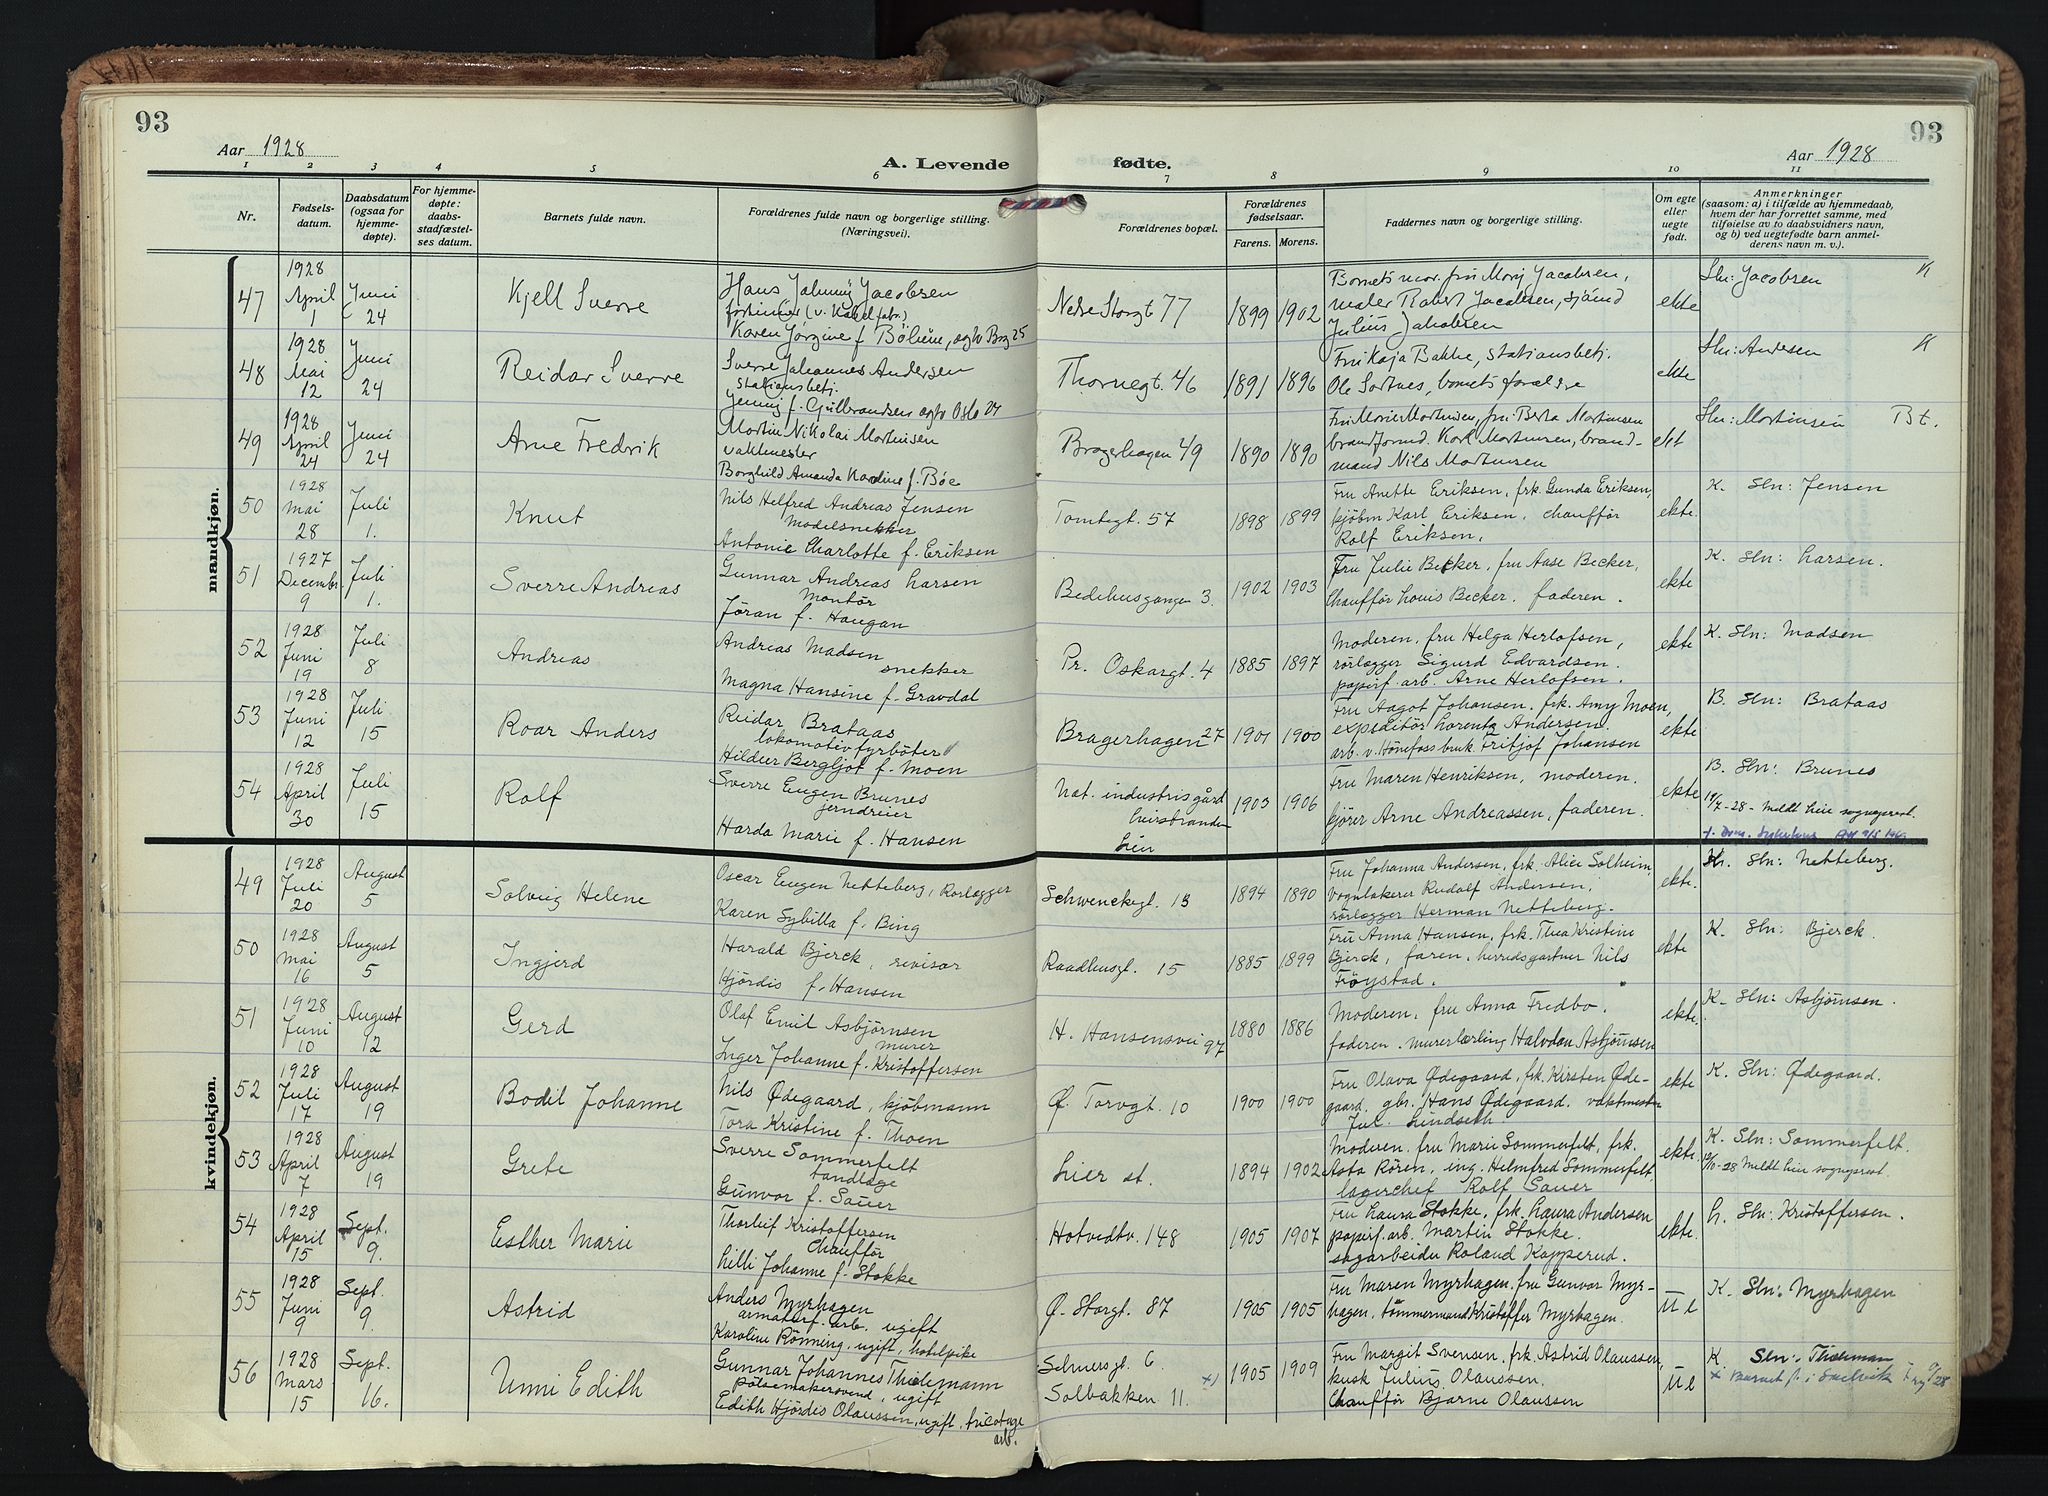 93
Aar 1928
A. Levende
1 2 3 4 5 6
Nr.
Fødsels-
datum.
Daabsdatum
(ogsaa for
hjemme-
døpte).
For hjemme-
døpte:
daabs-
stadfæstel-
ses datum.
Barnets fulde navn.
Forældrenes fulde navn og borgerlige stilling.
(Næringsvei).
mandkjøn.
47
1928
April
1
Juni
24
Kjell Sverre
Hans Jacobsen
Karen Jørgine f.
48
1928
Mai
12
Juni
24
Reidar Sverre
Sverre Johannes Andersen
stationsbetj.
Jenny f. Gulbrandsen
49
1928
April
24
Juni
24
Arne Fredrik
Martin Nikolai Mortensen
vaktmester
Borghild Amanda Karoline f. Bøe
50
1928
Mai
28
Juli
1.
Knut
Nils Helfred Andreas Jensen
Modelsnekker
Antonie Charlotte f. Eriksen
51
1927
Decembr.
9
Juli
1.
Sverre Andreas
Gunnar Andreas Larsen
Montör
Jöran f. Haugan
52
1928
Juni
19
Juli
8
Andreas
Andreas Madsen
snekker
Magna Hansine f. Gravdal
53
1928
Juni
12
Juli
15
Roar Anders
Reidar Brataas
lokomotivfyrböter
Hildur Bergljot f. Moen
54
1928
April
30
Juli
15
Rolf
Sverre Eugen Brunes
jerndreier
Harda Marie f. Hansen
kvindekjøn.
49
1928
Juli
20
August
5
Solveig Helene
Oscar Eugen Netteberg, Rörlegger
Karen Sybilla f. Bing
50
1928
Mai
16
August
5
Ingjerd
Harald Bjerck, revisor
Hjördis f. Hansen
51
1928
Juni
10
August
12
Gerd
Olaf Emil Asbjörnsen
murer
Inger Johanne f. Kristoffersen
52
1928
Juli
17
August
19
Bodil Johanne
Nils Ødegaard, kjöbmann
Tora Kristine f. Thoen
53
1928
April
7
August
19
Grete
Sverre Sommerfelt
tandlæge
Gunvor f. Sauer
54
1928
April
15
Sept.
9.
Esther Marie
Thorleif Kristoffersen
Chaufför
Lilli Johanne f. Stokke
55
1928
Juni
9
Sept.
9.
Astrid
Anders Myrhagen
armaturf. arb. ugift
Karoline Rönning, ugift, hotelpike
56
1928
Mars
15
Sept.
16.
Unni Edith
Gunnar Johannes Thelemann
pölsemakersvend, ugift
Edith Hjördis Olaussen, ugift, tricotage
arb.
93
Aar 1928
fødte.
7 8 9 10 11
Forældrenes bopæl.
Forældrenes
fødselsaar.
Farens. Morens.
Faddernes navn og borgerlige stilling.
Om egte
eller
uegte
født.
Anmerkninger
(saasom: a) i tilfælde av hjemmedaab,
hvem der har forrettet samme, med
tilføielse av to daabsvidners navn,
og b) ved uegtefødte barn anmel-
derens navn m. v.).
Nedre Storgt 77
1899 1902
Barnets mor, fru Jacobsen,
maler Robert Jacobsen, sjömd
Julius Jakobsen
ekte
Sln: Jacobsen K
Thornegt. 46
1891 1896
Fru Kaja Bakke, stationsbetj.
Ole, barnets forældre
ekte
Sln: Andersen K
Bragerhagen 49
1890 1890
Fru Marie Mortensen, fru Berta Mortensen
brandformd. Karl Mortensen, brand-
mand Nils Mortensen
ekt
Sln: Mortensen Bt.
Tomtegt. 57
1898 1899
Fru Anette Eriksen, frk. Gunda Eriksen,
kjöbm Karl Eriksen, chaufför
Rolf Eriksen.
ekte.
K. Sln: Jensen
Bedehusgangen 3.
1902 1903
Fru Julie Becker, fru Aase Becker,
Chaufför Louis Becker. faderen.
ekte
K. Sln: Larsen.
Pr. Oskarsgt. 4
1885 1897
Moderen, fru Helga Herlofsen,
rörlegger Sigurd Edvardsen.
papirf. arb. Arne Herlofsen.
ekte
K. Sln: Madsen
Bragerhagen 27
1901 1900
Fru Aagot Johansen. frk. Amy Moen,
expeditör Lorentz Andersen.
arb. v. Hönefoss bruk Fritjof Johansen
ekte
B. Sln: Brataas
Nat. industrisgård
Lierstranden
Lier
1903 1906
Fru Maren Henriksen, moderen.
kjörer Arne Andreassen, faderen.
ekte
B. Sln: Brunes
19/7-28 - Meldt Lier sogneprest.
Schwenckegt. 13
1894 1890
Fru Johanna Andersen, frk. Alice Solheim,
Vognlakerer Rudolf Andersen,
rörlegger Herman Netteberg.
ekte.
K. Sln: Netteberg.
Raadhusgt. 15
1885 1899
Fru Anna Hansen, frk. Thea Kristine
Bjerck, faren, herredsgartner Nils
Fröystad.
ekte
K. Sln: Bjerck.
H. Hansensvei 97
1880 1886
Moderen, fru Anna Fredbo.
faderen. murerlærling Halvdan Asbjörnsen
ekte.
K. Sln: Asbjörnsen.
Ø. Torvgt. 10
1900 1900
Fru Olava Ødegaard, frk. Kirsten Øde-
gaard, gbr. Hans Ødegaard. vaktmestr
Jul. Lindseth.
ekte
K. Sln: Ødegaard.
Lier st.
1894 1902
Moderen. fru Marie Sommerfelt, frk.
Asta Rören, ing. Helmfred Sommerfelt,
lagerchef Rolf Sauer
ekte.
K. Sln: Sommerfelt.
Meldt Lier sogneprest.
Hotvedtv. 148
1905 1907
Fru Laura Stokke, frk. Laura Andersen
papirf. arb. Martin Stokke.
sagarbeider Roland Kopperud.
ekte.
L. Sln: Kristoffersen.
Ø. Storgt. 87
1905 1905
Fru Maren Myrhagen, fru Gunvor Myr-
hagen. tömmermand Kristoffer Myrhagen.
U e
K. Sln: Myrhagen
Selmersgt. 6
Solbakken 11.
x)
1905 1909
Fru Margit Svensen, frk. Astrid Olaussen,
kusk Julius Olaussen.
Chaufför Bjarne Olaussen
U e
K Sln: Thelemann
x Barnet f. i Svelvik